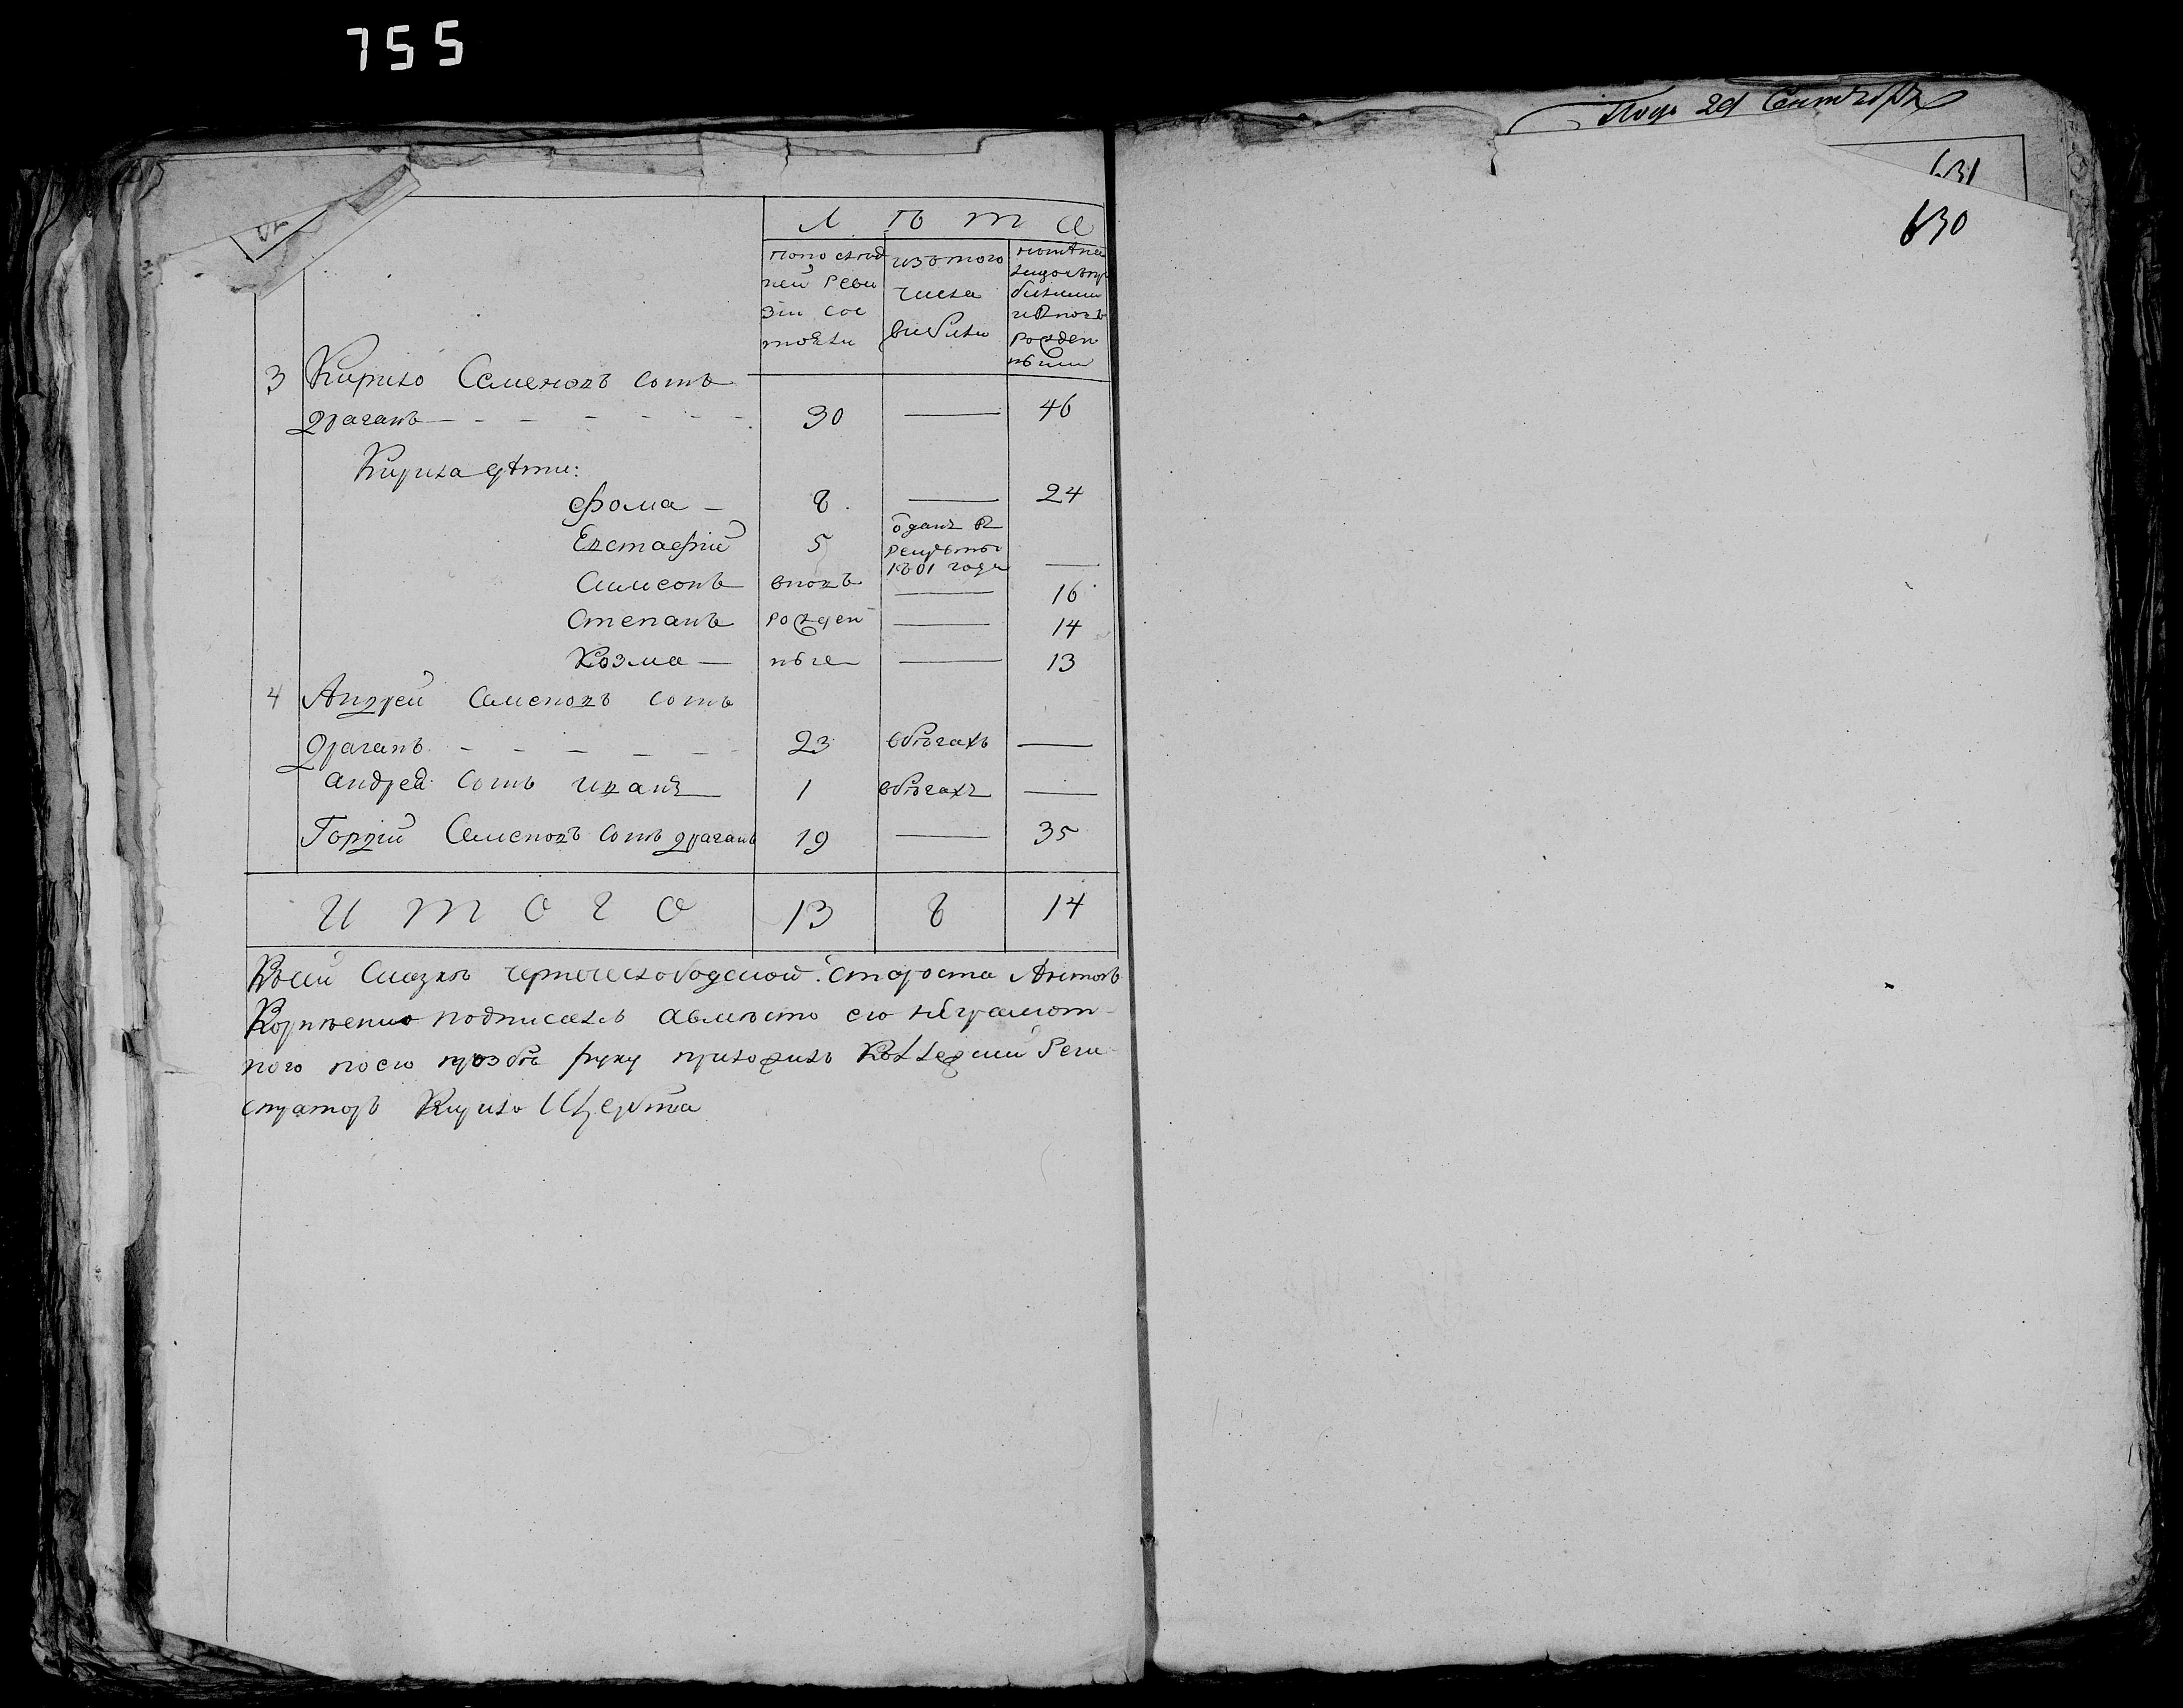 755
Подъ 29 Сентября
631
630
Л ѣ т а
по послѣд
ней Реви
зіи сос
тояли
изъ того
числа
вибили
нинѣ на
лицо съ при
билими
и вновь
рожден
ными
3 Кирило Семеновъ синъ
драганъ 30 — 46
Кирила дѣти:
Фома — 8 — 24
Евстафий 5 —
отданъ в
рекруты
1801 года
Симеонъ вновь — 16
Степанъ рожден — 14
Козма — ные — 13
4 Андрей Семеновъ синъ
драганъ 23 вбѣгахъ —
андрея синъ иванъ 1 вбѣгахъ —
Гордий Семеновъ синъ драганъ 19 — 35
И т о г о 13 8 14
Ксей Сказкѣ староста Антонъ
Корнѣенко подписался авмѣсто его неграмот-
ного поего прозбѣ руку приложилъ Коллежский Реги-
страторъ Кирило Щербина